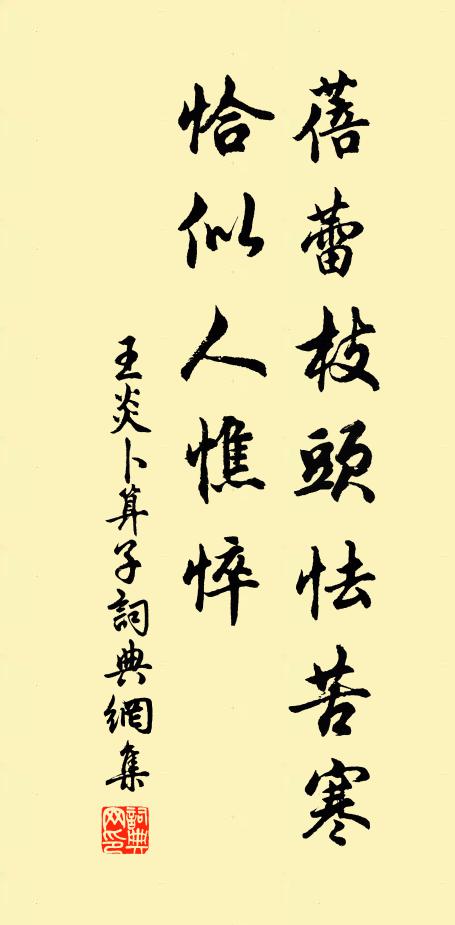 蓓蕾枝頭怯苦寒
恰似人憔悴
王炎卜算子詞典網集
詞典网印